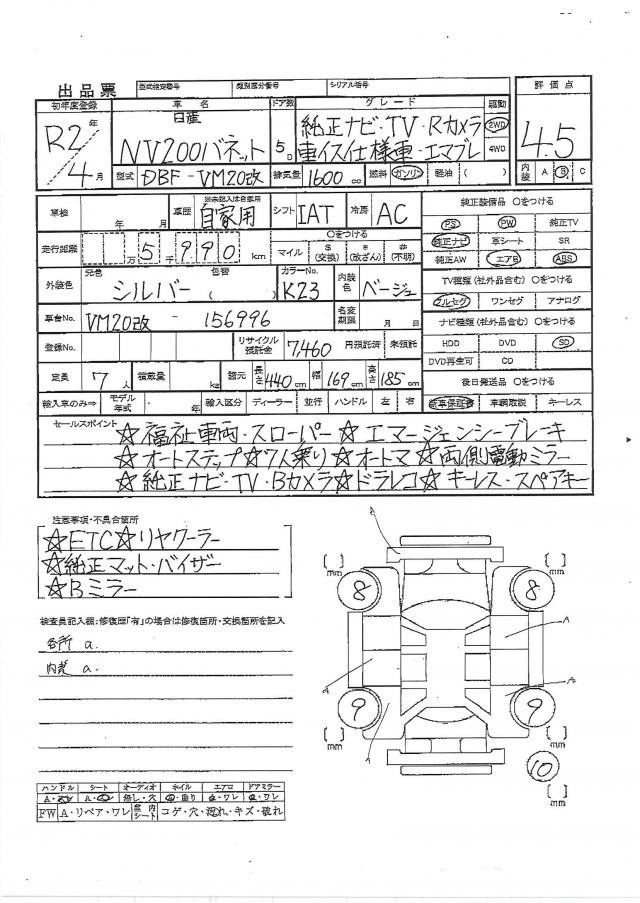 出品票 型式指定番号 類別区分番号 シリアル番号 評価点
初年度登録 車名 ドア数 グレード 駆動
R2年/4月 日産 NV200バネット 5D 純正ナビ・TV・Rカメラ 2WD 4.5
車イス仕様車・エマブレ 4WD
型式 DBF-VM20改 排気量 1600cc 燃料 ガソリン 軽油 ( ) 内装 A B C
車検 年 月 車歴 ※未記入は自家用 自家用 シフト IAT 冷房 AC 純正装備品 〇をつける
PS PW 純正TV
走行距離 万 5千 990 km 〇をつける マイル $(交換) *(改ざん) #(不明) 純正ナビ 革シート SR
純正AW エアB ABS
外装色 元色 シルバー 色替 ( ) カラーNo. K23 内装色 ベージュ TV種類(社外品含む)〇をつける
フルセグ ワンセグ アナログ
車台No. VM20改 - 156996 名変期限 月 日 ナビ種類(社外品含む)〇をつける
登録No. リサイクル預託金 7,460 円預託済 未預託 HDD DVD SD
DVD再生可 CD
定員 7人 積載量 kg 諸元 長さ 440cm 幅 169cm 高さ 185cm 後日発送品 〇をつける
輸入車のみ⇒ モデル年式 ・ 年 輸入区分 ディーラー 並行 ハンドル 左 右 新車保証書 車輌取説 キーレス
セールスポイント
☆福祉車両・スローパー☆エマージェンシーブレーキ
☆オートステップ☆7人乗り☆オートマ☆両側電動ミラー
☆純正ナビ・TV・Bカメラ☆ドラレコ☆キーレス・スペアキー
注意事項・不具合箇所
☆ETC☆リヤクーラー
☆純正マット・バイザー
☆Bミラー
検査員記入欄:修復歴「有」の場合は修復箇所・交換箇所を記入
各所 a.
内装 a.
A
A
[ ] mm 8 8 [ ] mm
A
A
A
A
9 9
[ ] mm [ ] mm
10
[ ] mm
ハンドル シート オーディオ ホイル エアロ ドアミラー
無し・穴 曲り ・ワレ ・ワレ
FW A・リペア・ワレ 室内シート コゲ・穴・濡れ・キズ・破れ